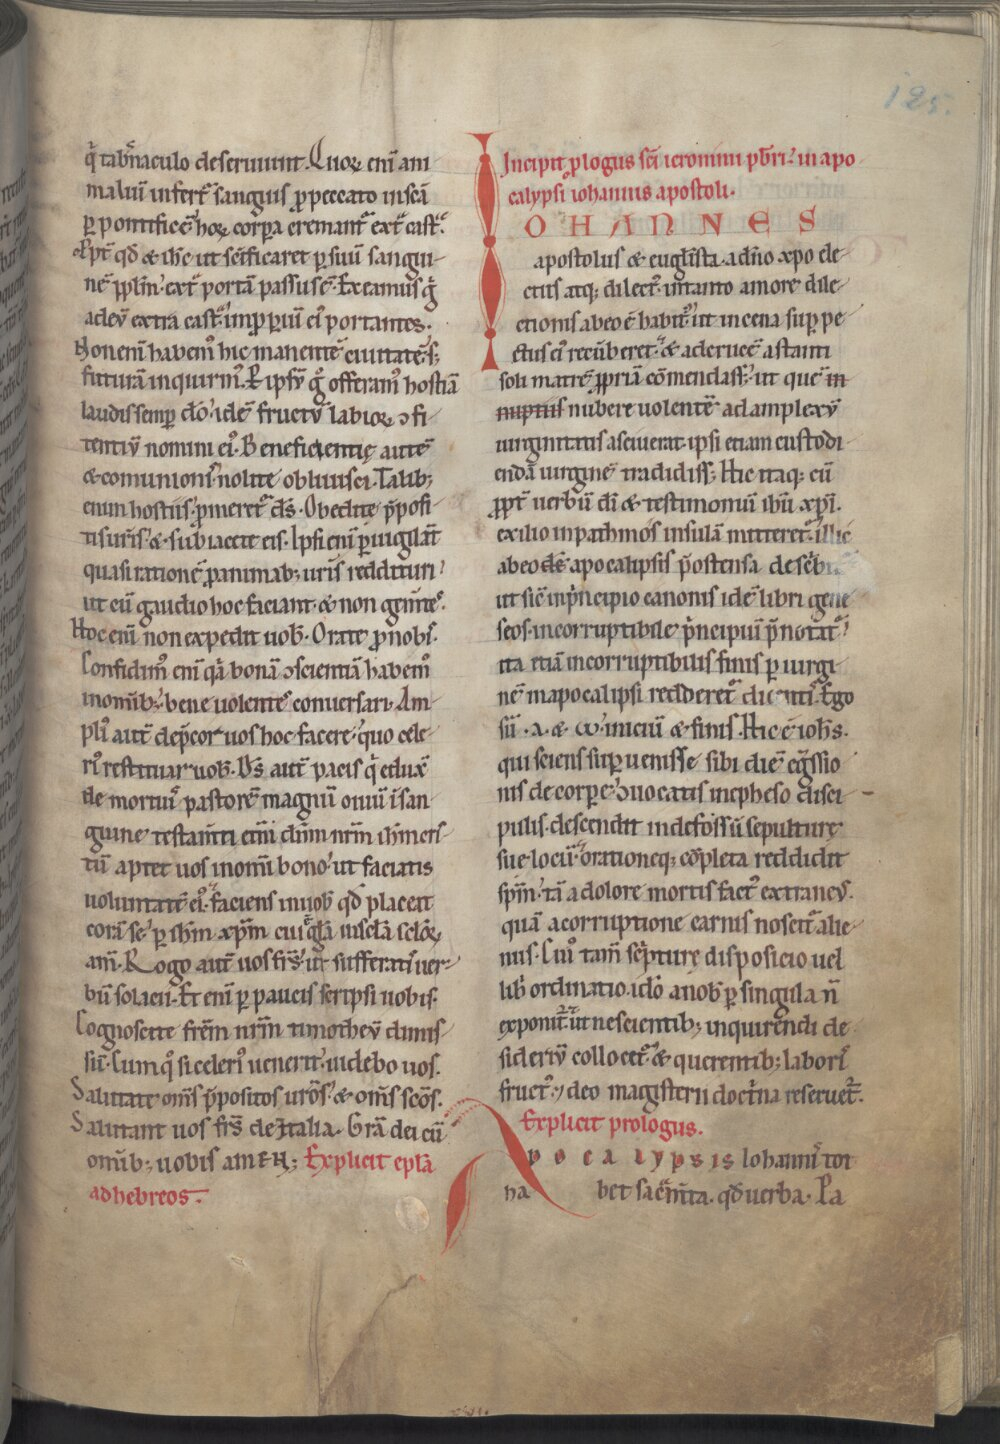 125.
q̇ tab̄naculo deseruiunt. Quoꝝ eni͛ ani
maliū infert᷑ sanguis ꝓ peccato in sc̄a
ꝑ pontificē hoꝝ corꝑa cremant᷑ ext͛ cast᷑.
Ppt̄ qđ & ih̄c ut sc̄ificaret ꝑ suū sangui
nē ppl̄m ext͛ portā passus ē. Exeamus g͛
ad eū extra cast᷑ inproꝑiū ei᷒ portantes.
Non enī habem᷒ hic manentē ciuitatē s;
futurā inquirim᷒. P ipsū g͛ offeram᷒ hostiā
laudis semꝑ dō. id ē fructū labioꝝ ↄfi
tentiū nomini ei᷒. Beneficientię autē
& communionis nolite obliuisci. Talib;
enim hostiis ꝓmeret᷑ ds̄. Obedite p̄posi
tis uris & subiacete eis. Ipsi enī ꝑuigilāt
quasi rationē ꝓ animab; uris reddituri.
ut cū gaudio hoc faciant & non gem̄tes.
Hoc enī non expedit uob̄. Orate ꝓ nobis.
Confidim᷒ enī qa bonā ↄscientiā habem᷒
in om̄ib; bene uolentes conuersari. Am
pli᷒ aut̄ dep̄cor uos hoc facere. quo cele
ri᷒ restituar uob̄. Ds̄ aut̄ pacis q̇ eduxit
de mortuis pastorē magnū ouiū ī san
guine testam̄ti et̄ni dn̄m nr̄m ih̄m cris
tū aptet uos in om̄i bono ut faciatis
uoluntatē ei᷒. faciens in uob̄ qđ placeat
corā se ꝑ ih̄m xp̄m cui gl̄a in sc̄la sc̄loꝝ
am̄. Rogo aut̄ uos frs̄ ut sufferatis uer
bū solacii. Et enī ꝑ paucis scripsi uobis.
Cognoscite frēm nr̄m timotheū dimis
sū. Cum q᷒ si celeri᷒ uenerit. uidebo uos.
Salutate om̄s p̄positos urōs & om̄s scōs.
Salutant uos frs̄ de Italia. Grā dei cū
om̄ib; uobis AMEN; Explicit epl̄a
ad hebreos.
Incipit ꝓlogus sc̄i ieronimi pb̄ri in apo
calypsi iohannis apostoli.
IOHANNES
apostolus & eugl̄ista. a dn̄o xpo ele
ctus atq; dilect᷒. in tanto amore dile
ctionis ab eo ē habit᷒. ut in cena sup pe
ctus ei᷒ recūberet. & ad crucē astanti
soli matrē ꝓpriā cōmendasset. ut quē in
nuptiis nubere uolentē ad amplexū
uirginitatis asciuerat. ipsi etiam custodi
endā uirginē tradidisset. Hic itaq; cū
ꝓpt̄ uerbū dī & testimoniū ih̄u xp̄i.
exilio in pathmos insulā mitteret᷑. illic
ab eodē apocalipsis p̄ostensa desc̄bi
ut sic in p̄ncipio canonis id ē libri gene
seos. incorruptibile p̄ncipiū p̄notat᷑
ita etiā incorruptibilis finis ꝑ uirgi
nē in apocalipsi redderet᷑ dicenti. Ego
sū .a. & ω. iniciū & finis. Hic ē ioh̄s.
qui sciens suꝑuenisse sibi diē eg̃ssio
nis de corꝑe. ↄuocatis in epheso disci
pulis. descendit in defossū sepulturę
sue locū. orationeq; cōpleta reddidit
sp̄m. tā a dolore mortis fact᷒ extraneus.
quā a corruptione carnis noscit᷑ alie
nus. Cui᷒ tam̄ sc̄pturę disposicio uel
lib̄ ordinatio. idō a nob̄ ꝑ singula n̄
exponit᷑. ut nescientib; inquirendi de
sideriū collocet᷑. & querentib; laboris
fruct᷒. deo magisterii doctrina reseruet᷑.
Explicit prologus.
Apocalypsis Iohannis tot
ha bet sacm̄ta. qđ uerba. Pa